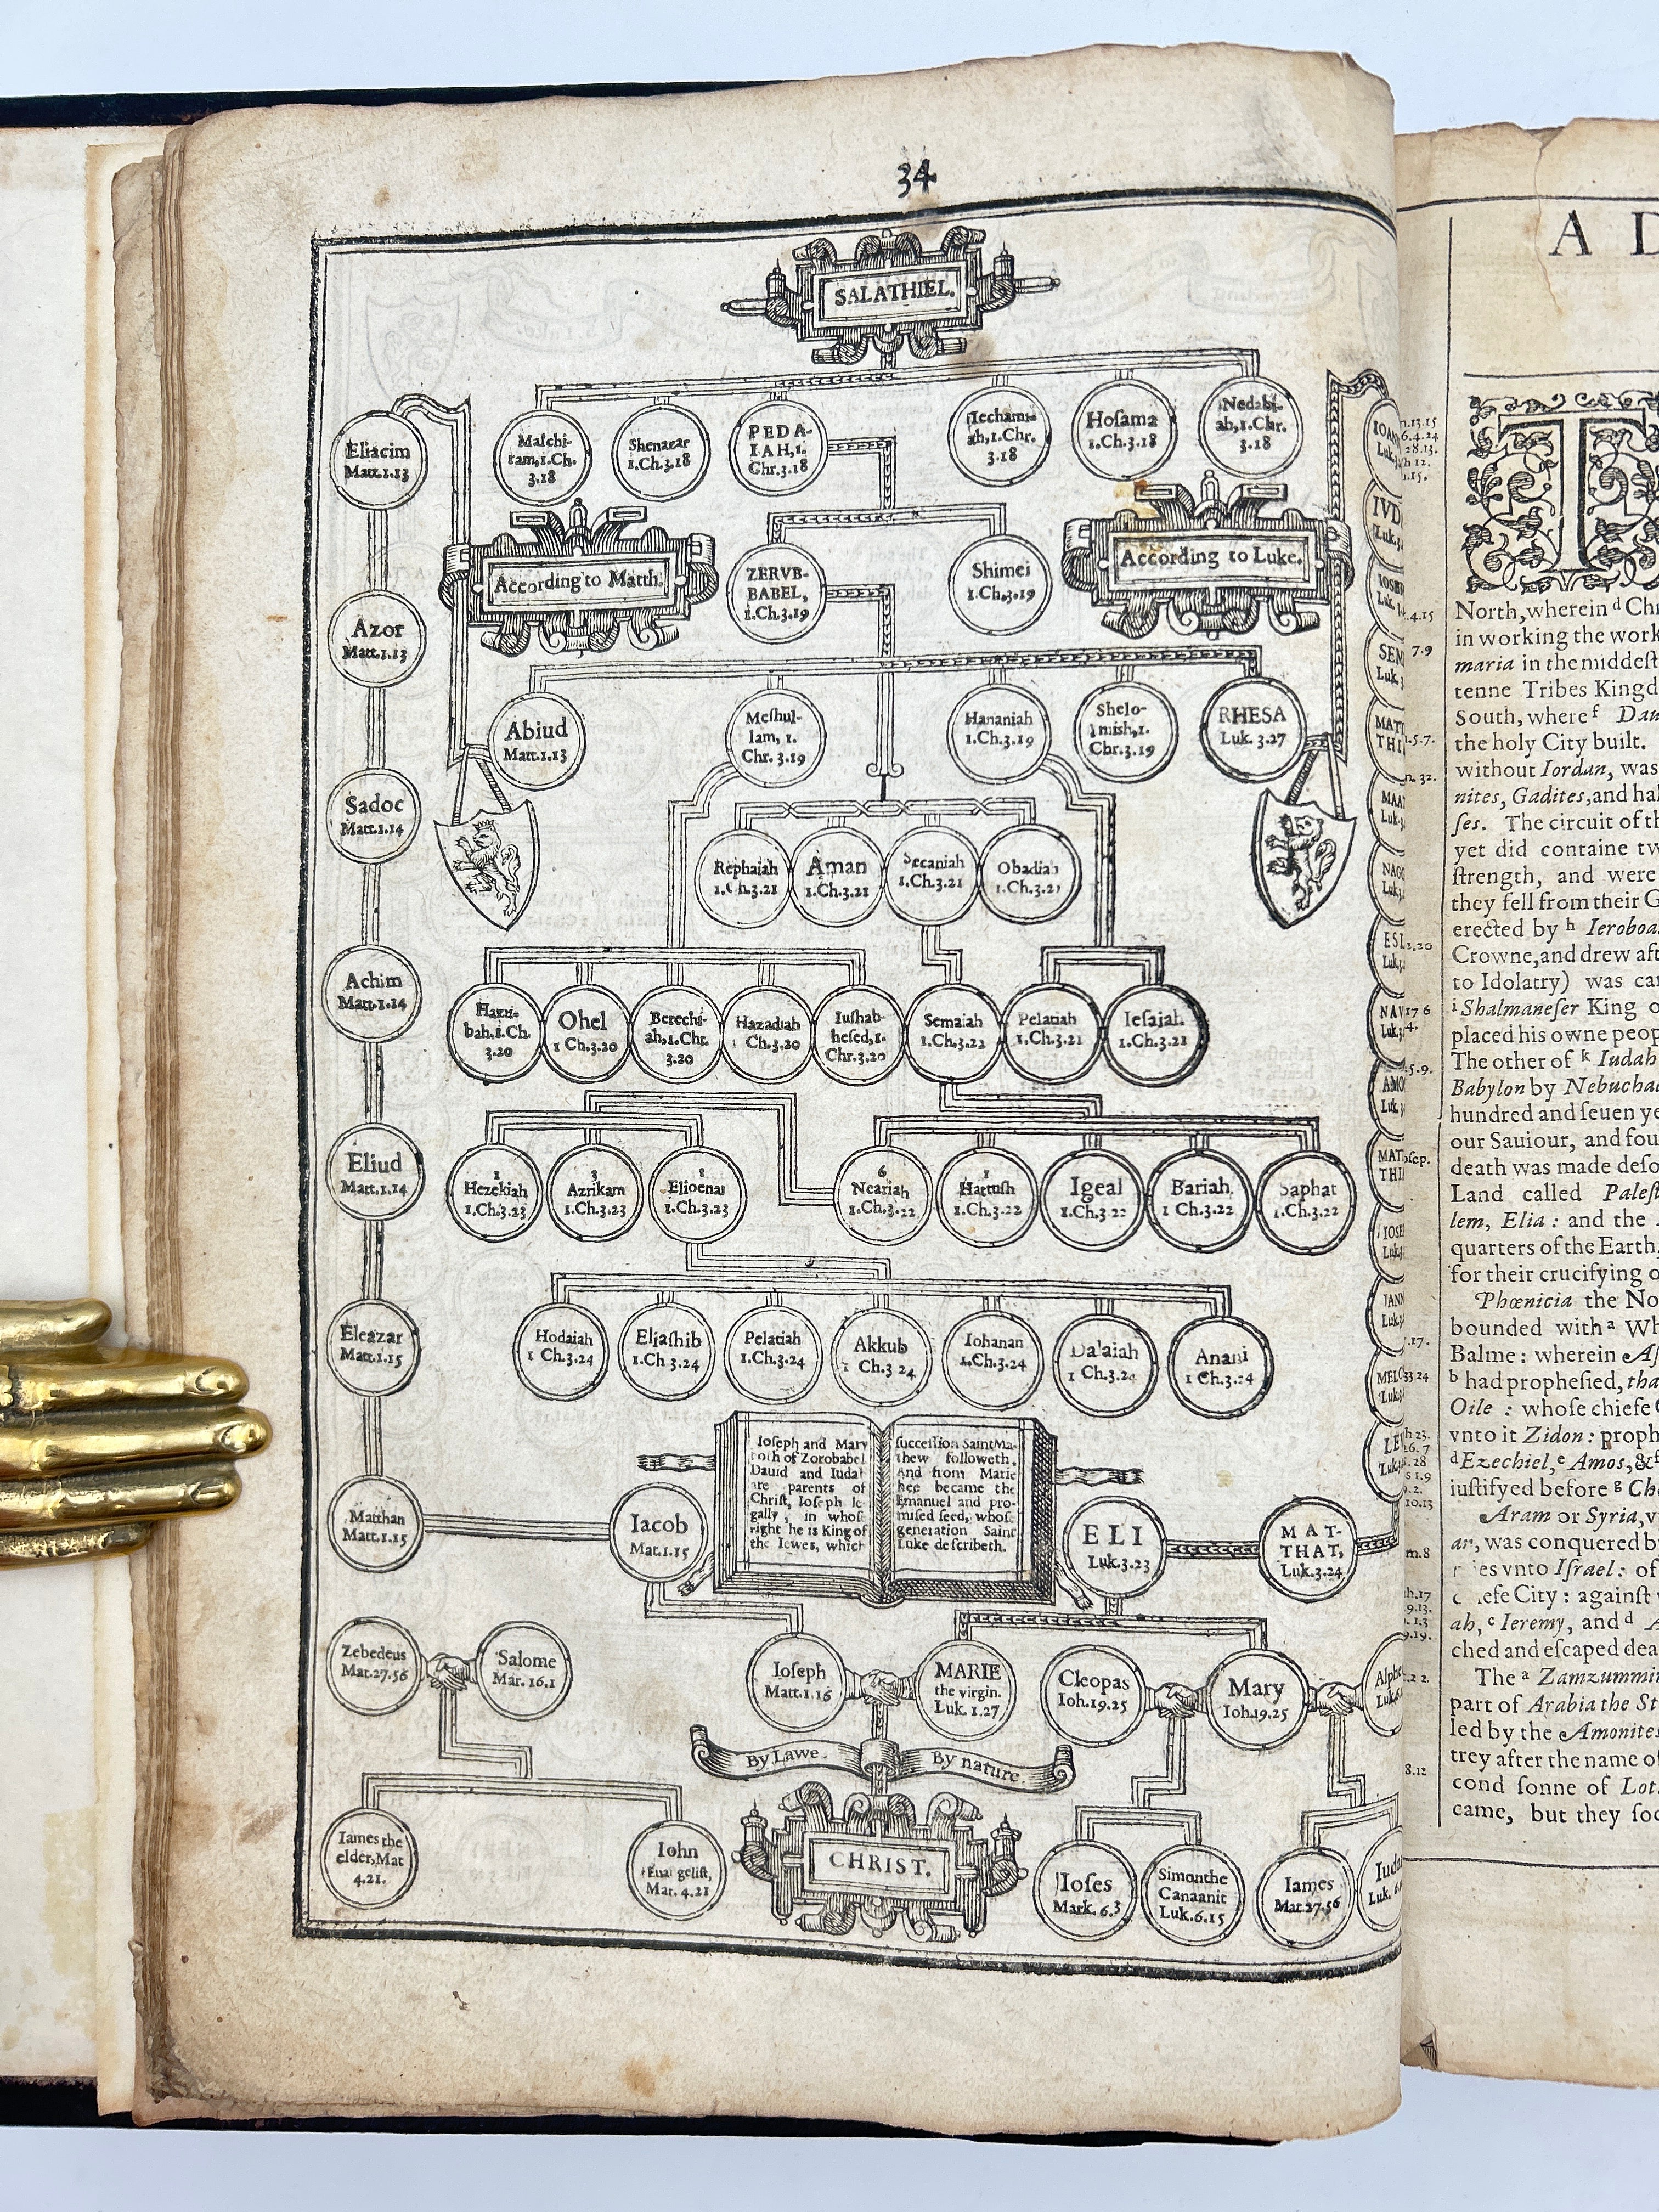 34
SALATHIEL.
Eliacim
Matt.1.13
Malchi-
ram,1.Ch.
3.18
Shenazar
1.Ch.3.18
PEDA-
IAH,1.
Chr.3.18
Iechami-
ah,1.Chr.
3.18
Hoſama
1.Ch.3.18
Nedabi-
ah,1.Chr.
3.18
According to Matth.
ZERVB-
BABEL,
1.Ch.3.19
Shimei
1.Ch.3.19
According to Luke.
Azor
Matt.1.13
Abiud
Matt.1.13
Meſhul-
lam, 1.
Chr. 3.19
Hananiah
1.Ch.3.19
Shelo-
mish,1.
Chr.3.19
RHESA
Luk. 3.27
Sadoc
Matt.1.14
Rephaiah
1.Ch.3.21
Aman
1.Ch.3.21
Secaniah
1.Ch.3.21
Obadiah
1.Ch.3.21
Achim
Matt.1.14
Hazu-
bah,1.Ch.
3.20
Ohel
1 Ch.3.20
Berechi-
ah,1.Chr.
3.20
Hazadiah
1 Ch.3.20
Iuſhab-
heſed,1.
Chr.3.20
Semaiah
1.Ch.3.22
Pelatiah
1.Ch.3.21
Ieſaiah.
1.Ch.3.21
Eliud
Matt.1.14
2
Hezekiah
1.Ch.3.23
3
Azrikam
1.Ch.3.23
1
Elioenai
1.Ch.3.23
6
Neariah
1.Ch.3.22
1
Hattuſh
1.Ch.3.22
Igeal
1.Ch.3 22
Bariah
1 Ch.3.22
Saphat
1.Ch.3.22
Eleazar
Matt.1.15
Hodaiah
1 Ch.3.24
Eliaſhib
1.Ch 3.24
Pelatiah
1.Ch.3.24
Akkub
1 Ch.3 24
Iohanan
1.Ch.3.24
Dalaiah
1 Ch.3.24
Anani
1 Ch.3.24
Matthan
Matt.1.15
Iacob
Mat.1.15
Ioſeph and Mary
both of Zorobabel
Dauid and Iudah
are parents of
Chriſt, Ioſeph le-
gally, in whoſe
right he is King of
the Iewes, which
ſucceſſion Saint Ma-
thew followeth.
And from Marie
hee became the
Emanuel and pro-
miſed ſeed, whoſe
generation Saint
Luke deſcribeth.
ELI
Luk.3.23
MAT-
THAT,
Luk.3.24
Zebedeus
Mat.27.56
Salome
Mar. 16.1
Ioſeph
Matt.1.16
MARIE
the virgin.
Luk. 1.27
Cleopas
Ioh.19.25
Mary
Ioh.19.25
By Lawe.
By nature.
Iames the
elder,Mat
4.21.
Iohn
Euangeliſt,
Mat. 4.21
CHRIST.
Ioſes
Mark. 6.3
Simon the
Canaanit
Luk.6.15
Iames
Mat.27.56
A D
T
North, wherein d Chr
in working the work
maria in the middeſt
tenne Tribes Kingd
South, where f Dau
the holy City built.
without Iordan, was
nites, Gadites, and hal
ſes. The circuit of th
yet did containe tw
ſtrength, and were
they fell from their G
erected by h Ieroboa
Crowne, and drew aft
to Idolatry) was car
i Shalmaneſer King o
placed his owne peop
The other of k Iudah
Babylon by Nebuchad
hundred and ſeuen ye
our Sauiour, and fou
death was made deſo
Land called Paleſt
lem, Elia : and the
quarters of the Earth,
for their crucifying o
Phœnicia the No
bounded with a Wh
Balme : wherein Aſ
b had propheſied, tha
Oile : whoſe chiefe
vnto it Zidon : proph
d Ezechiel, e Amos, & f
iuſtifyed before g Ch
Aram or Syria, v
ar, was conquered b
es vnto Iſrael : of
efe City : againſt
ah, c Ieremy, and d A
ched and eſcaped dea
The a Zamzummi
part of Arabia the St
led by the Amonites
trey after the name of
cond ſonne of Lot
came, but they ſoo